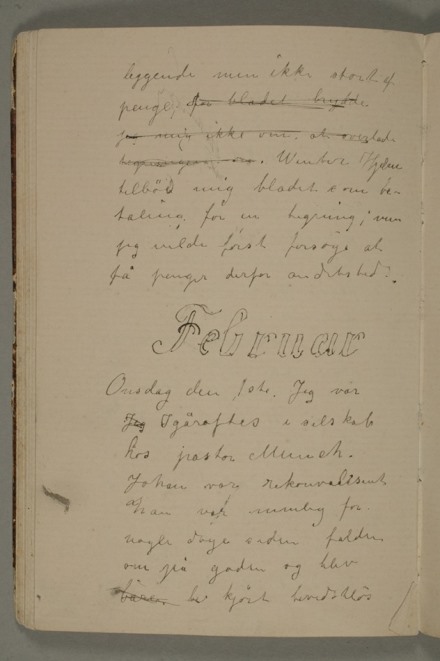 liggende men ikke stort af
penge, for bladet brydde
jeg mig ikke om, at overlade
tegningen. Winter Hjelm
tilbød mig bladet som be-
taling for en tegning; men
jeg vilde først forsøge at
få penger derfor andetsted.
Februar
Onsdag den 1ste. Jeg var
Jeg Igåraftes i selskab
hos pastor Munch.
Johan var rekonvalisent
han var nemlig for
nogle dage siden falden
om på gaden og blev
båren kjørt bevidstløs